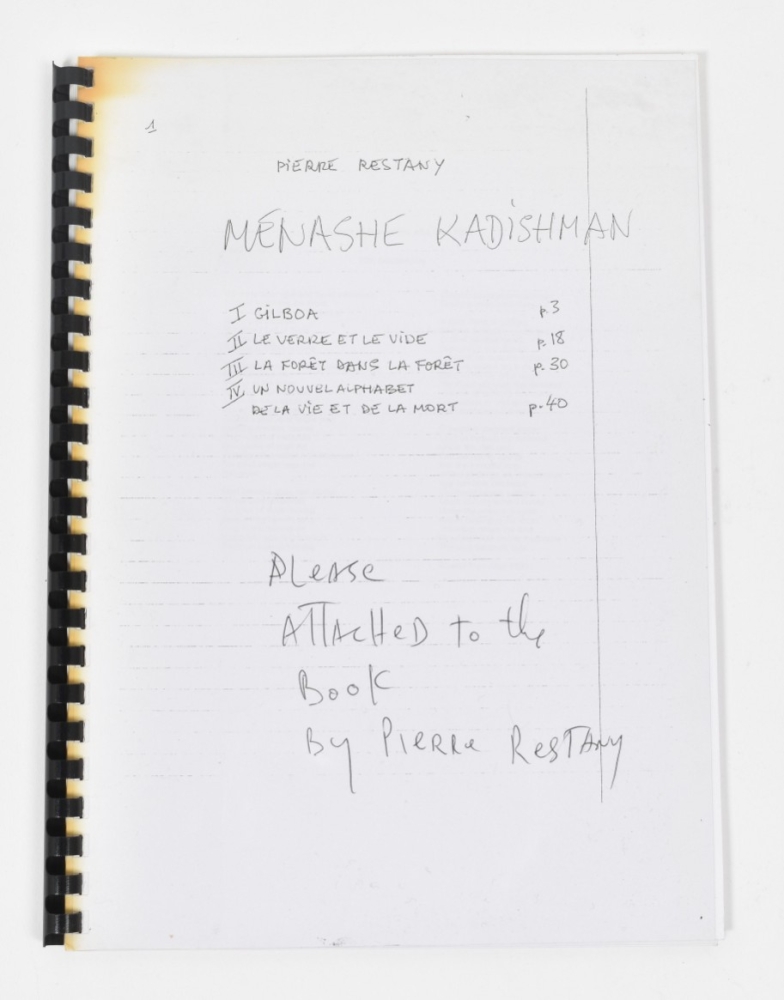 1
PiERRE RESTANY
MENASHE KADiSHMAN
I GiLBOA p.3
II LE VERRE ET LE ViDE p.18
III LA FORÊT DANS LA FORÊT p.30
IV UN NOUVEL ALPHABET
DE LA ViE ET DE LA MORT p.40
PLeASe
ATTAcHeD to the
Book
By PIeRRe ResTAny